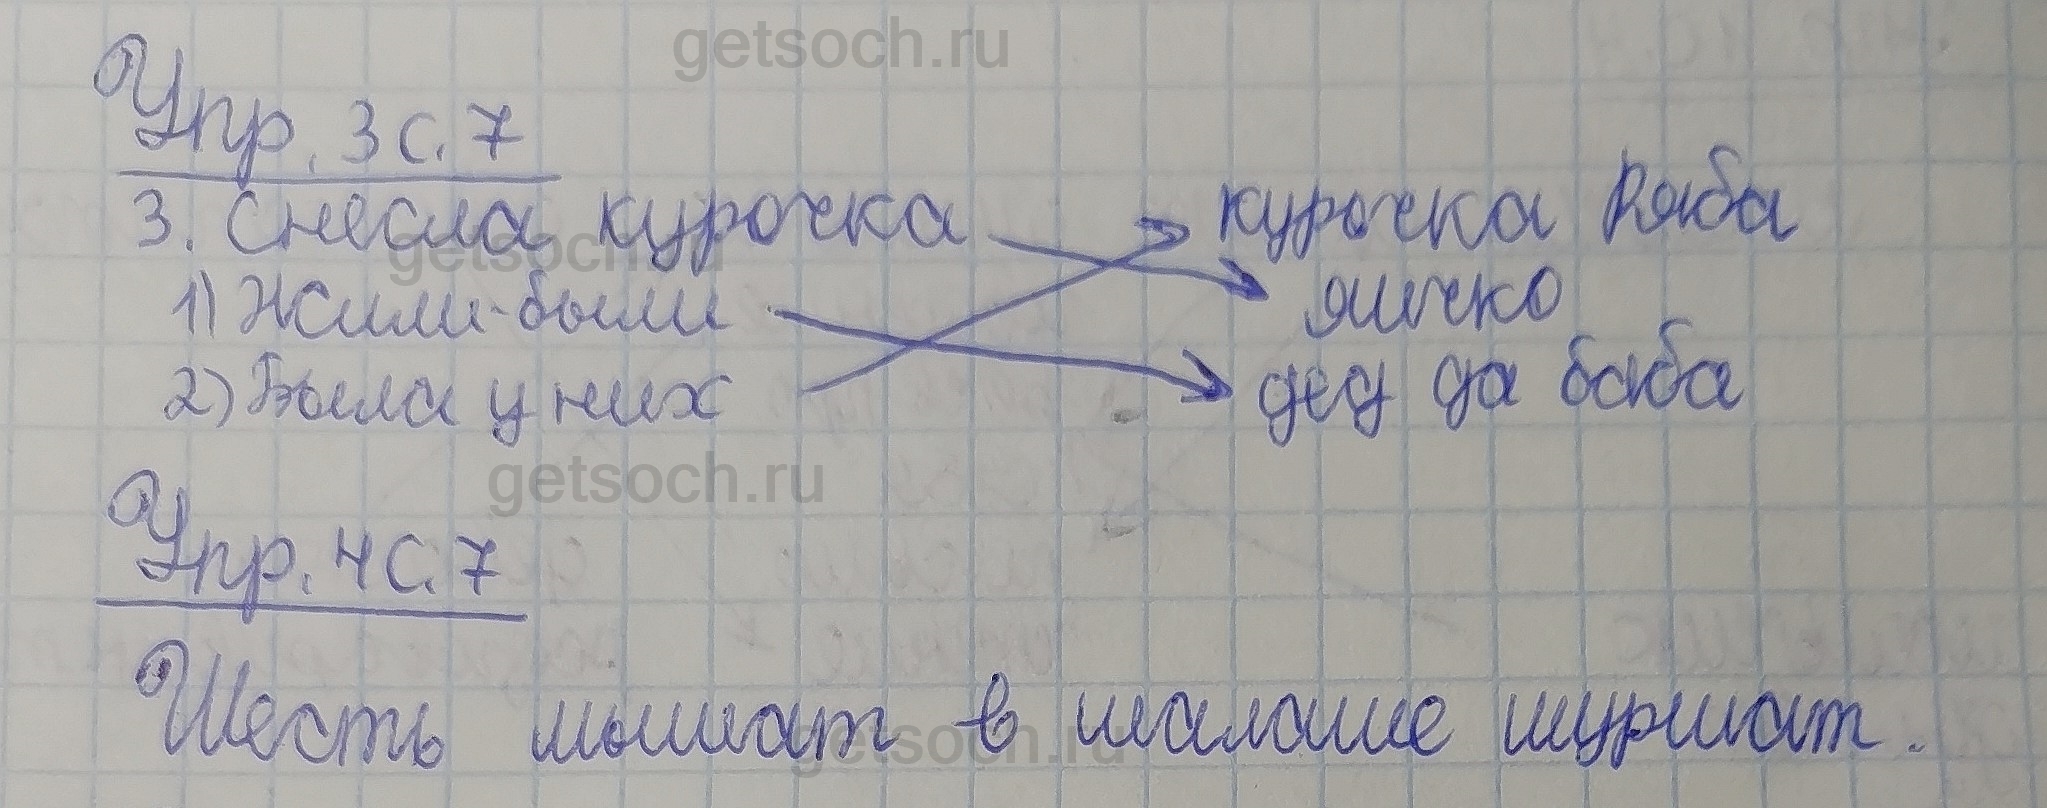 getsoch.ru
Упр. 3 с. 7
3. Снесла курочка курочка Ряба
getsoch.ru
1) Жили-были яичко
2) Была у них дед да баба
getsoch.ru
Упр. 4 с. 7
Шесть мышат в шалаше шуршат.
getsoch.ru